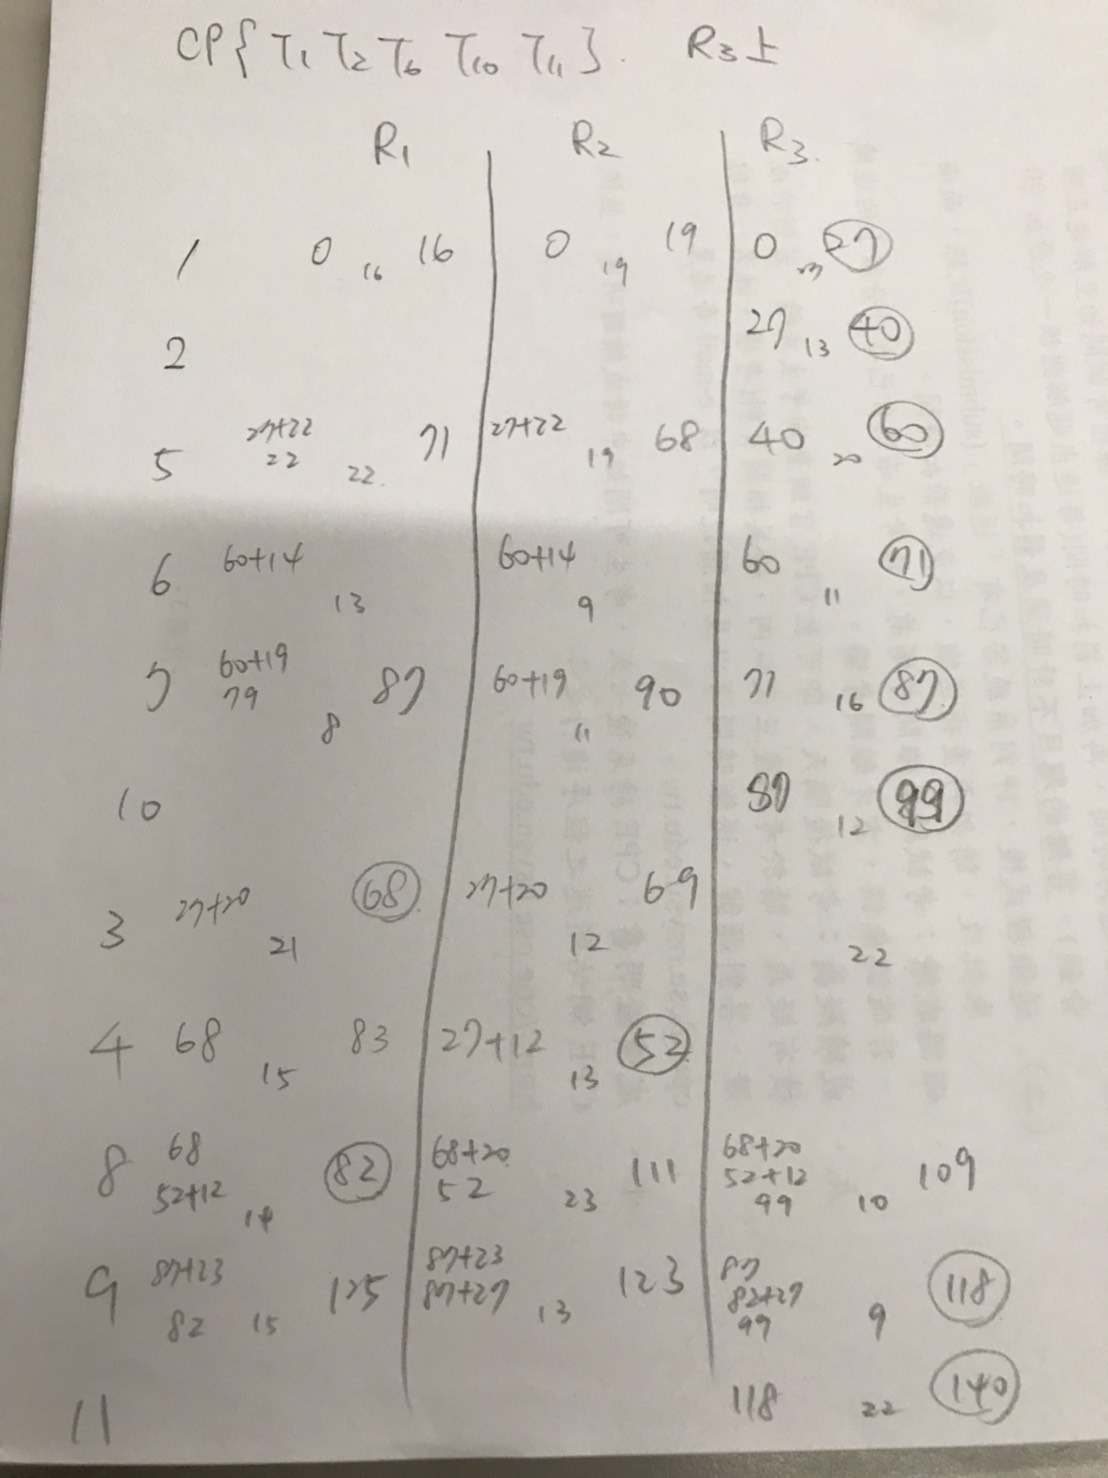 CP{ T1 T2 T6 T10 T11 }. R3上
R1 R2 R3.
1 0 16 16 0 19 19 0 27
2 27 13 40
5 27+22 22 22. 71 27+22 19 68 40 20 60
6 60+14 13 60+14 9 60 11 71
7 60+19 79 8 87 60+19 11 90 71 16 87
10 87 12 99
3 27+20 21 68 27+20 12 69 22
4 68 15 83 27+12 13 52
8 68 52+12 14 82 68+20 52 23 111 68+20 52+12 99 10 109
9 87+23 82 15 125 87+23 87+27 13 123 87 82+27 99 9 118
11 118 22 140